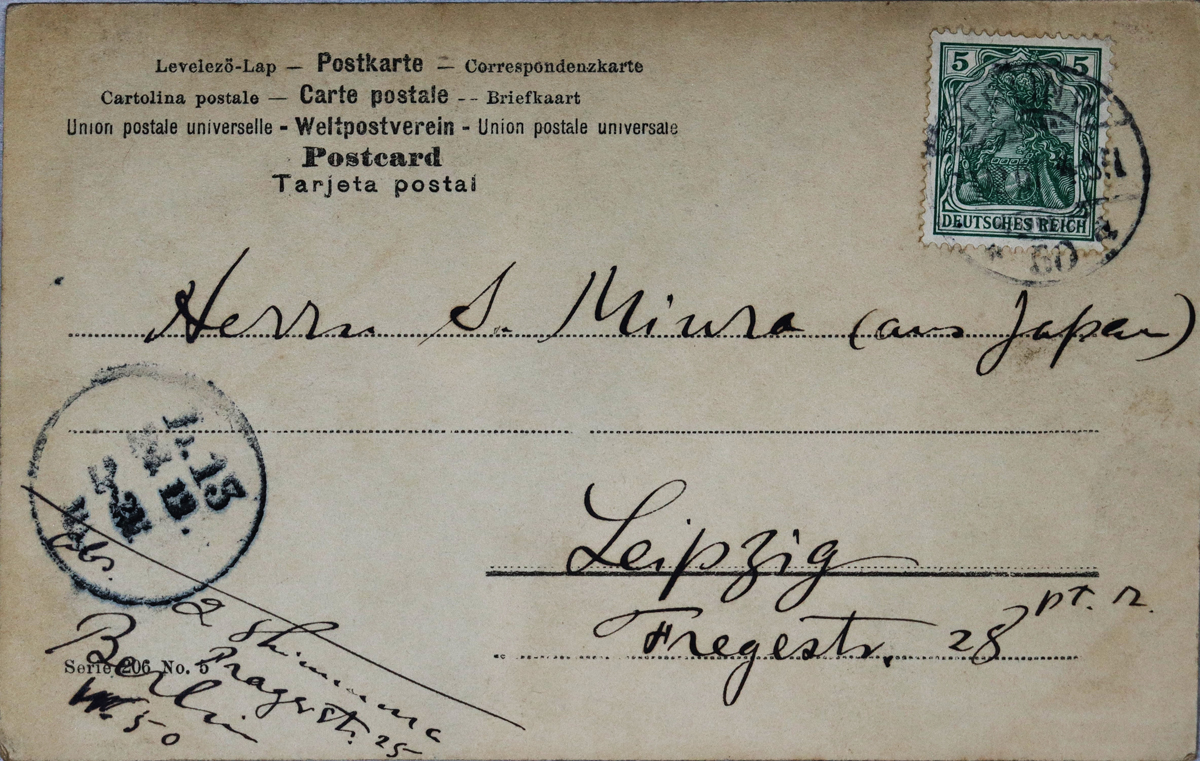 Levelezö-Lap — Postkarte — Correspondenzkarte
Cartolina postale — Carte postale -- Briefkaart
Union postale universelle - Weltpostverein - Union postale universale
Postcard
Tarjeta postal
5 5
DEUTSCHES REICH
Herrn S. Miura (aus Japan)
Leipzig
Fregestr. 28 pt. r.
Abs.
Shimura
Pragerstr. 25
Berlin
W. 50
Serie 206 No. 5